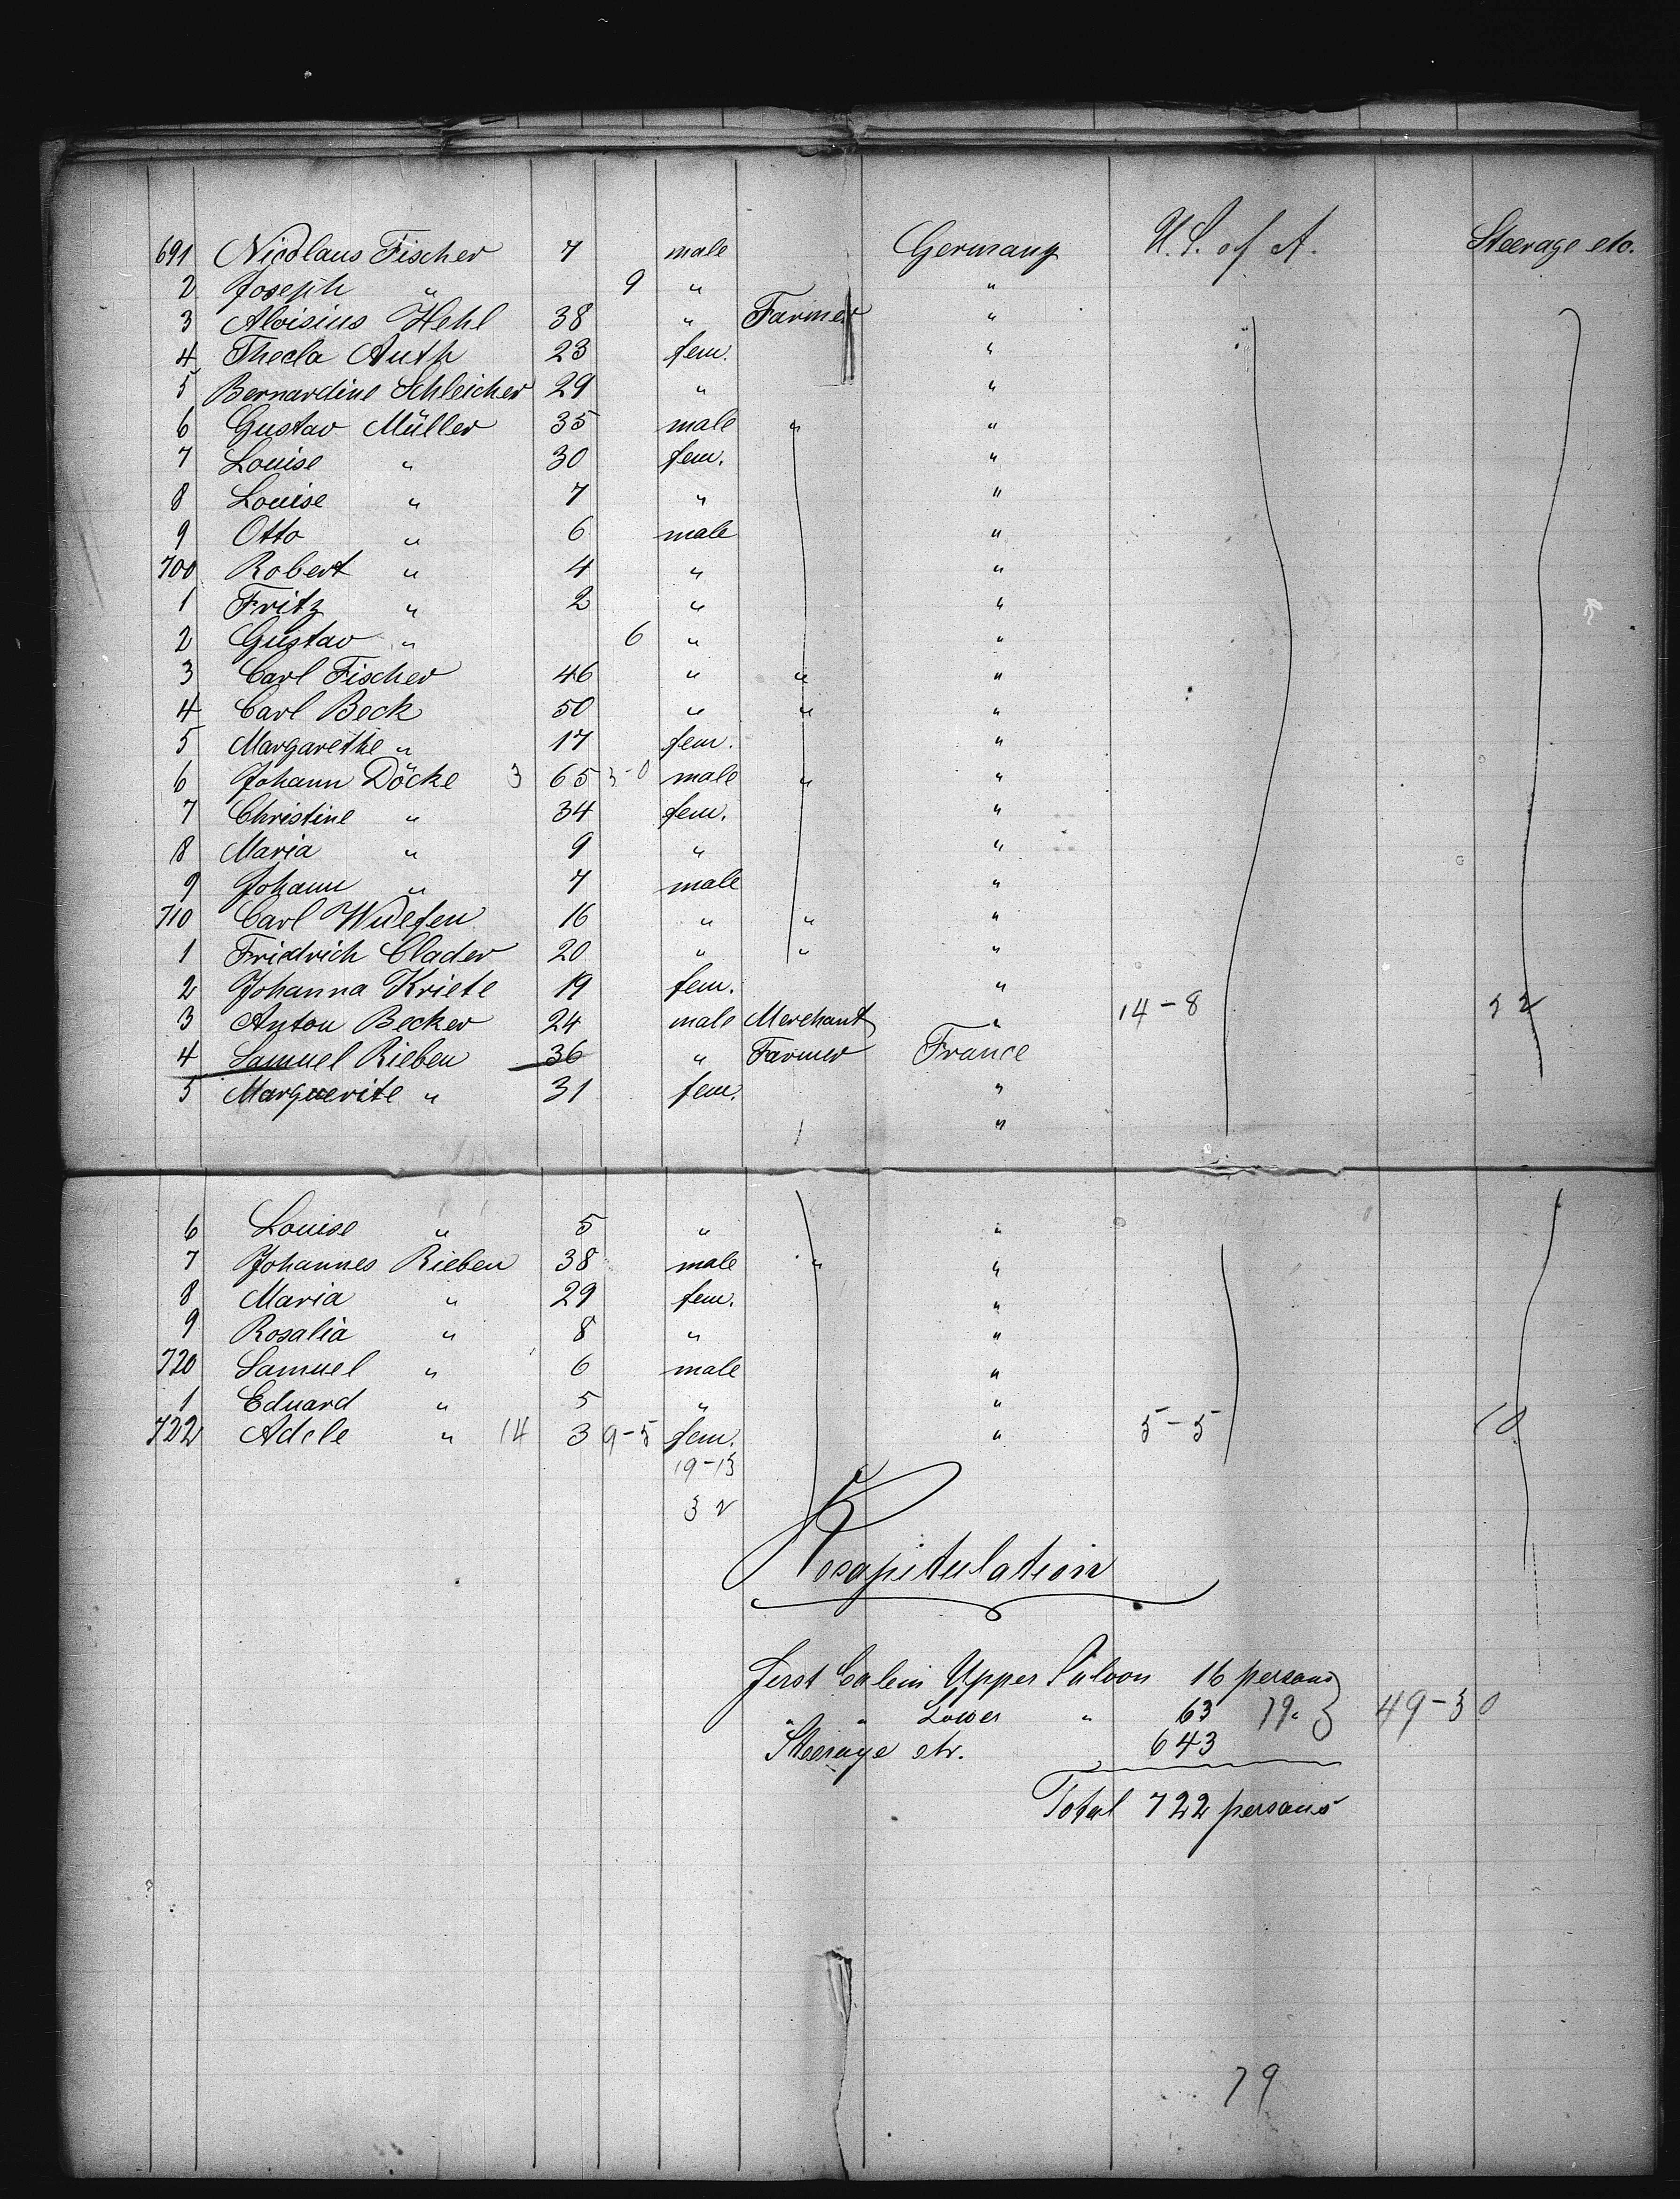 691 Nicolaus Fischer 7 male Germany U. S. of A. Steerage etc.
2 Joseph " 9 " "
3 Aloisius Hehl 38 " Farmer "
4 Thecla Auth 23 fem. "
5 Bernardine Schleicher 29 " "
6 Gustav Müller 35 male " "
7 Louise " 30 fem. "
8 Louise " 7 " "
9 Otto " 6 male "
700 Robert " 4 " "
1 Fritz " 2 " "
2 Gustav " 6 " "
3 Carl Fischer 46 " " "
4 Carl Beck 50 " " "
5 Margarethe " 17 fem. "
6 Johann Döcke 3 65 3-0 male " "
7 Christine " 34 fem. "
8 Maria " 9 " "
9 Johann " 7 male "
710 Carl Wulfen 16 " " "
1 Fridrich Clader 20 " " "
2 Johanna Kriete 19 fem. "
3 Anton Becker 24 male Merchant " 14-8 22
4 Samuel Rieben 36 " Farmer France
5 Marguerite " 31 fem. "
"
6 Louise " 5 " "
7 Johannes Rieben 38 male " "
8 Maria " 29 fem. "
9 Rosalia " 8 " "
720 Samuel " 6 male "
1 Eduard " 5 " "
722 Adele " 14 3 9-5 fem. " 5-5 10
19-13
32
Recapitulation
First Cabin Upper Saloon 16 persons
" " Lower " 63 79 49-30
Steerage etc. 643
Total 722 persons
79